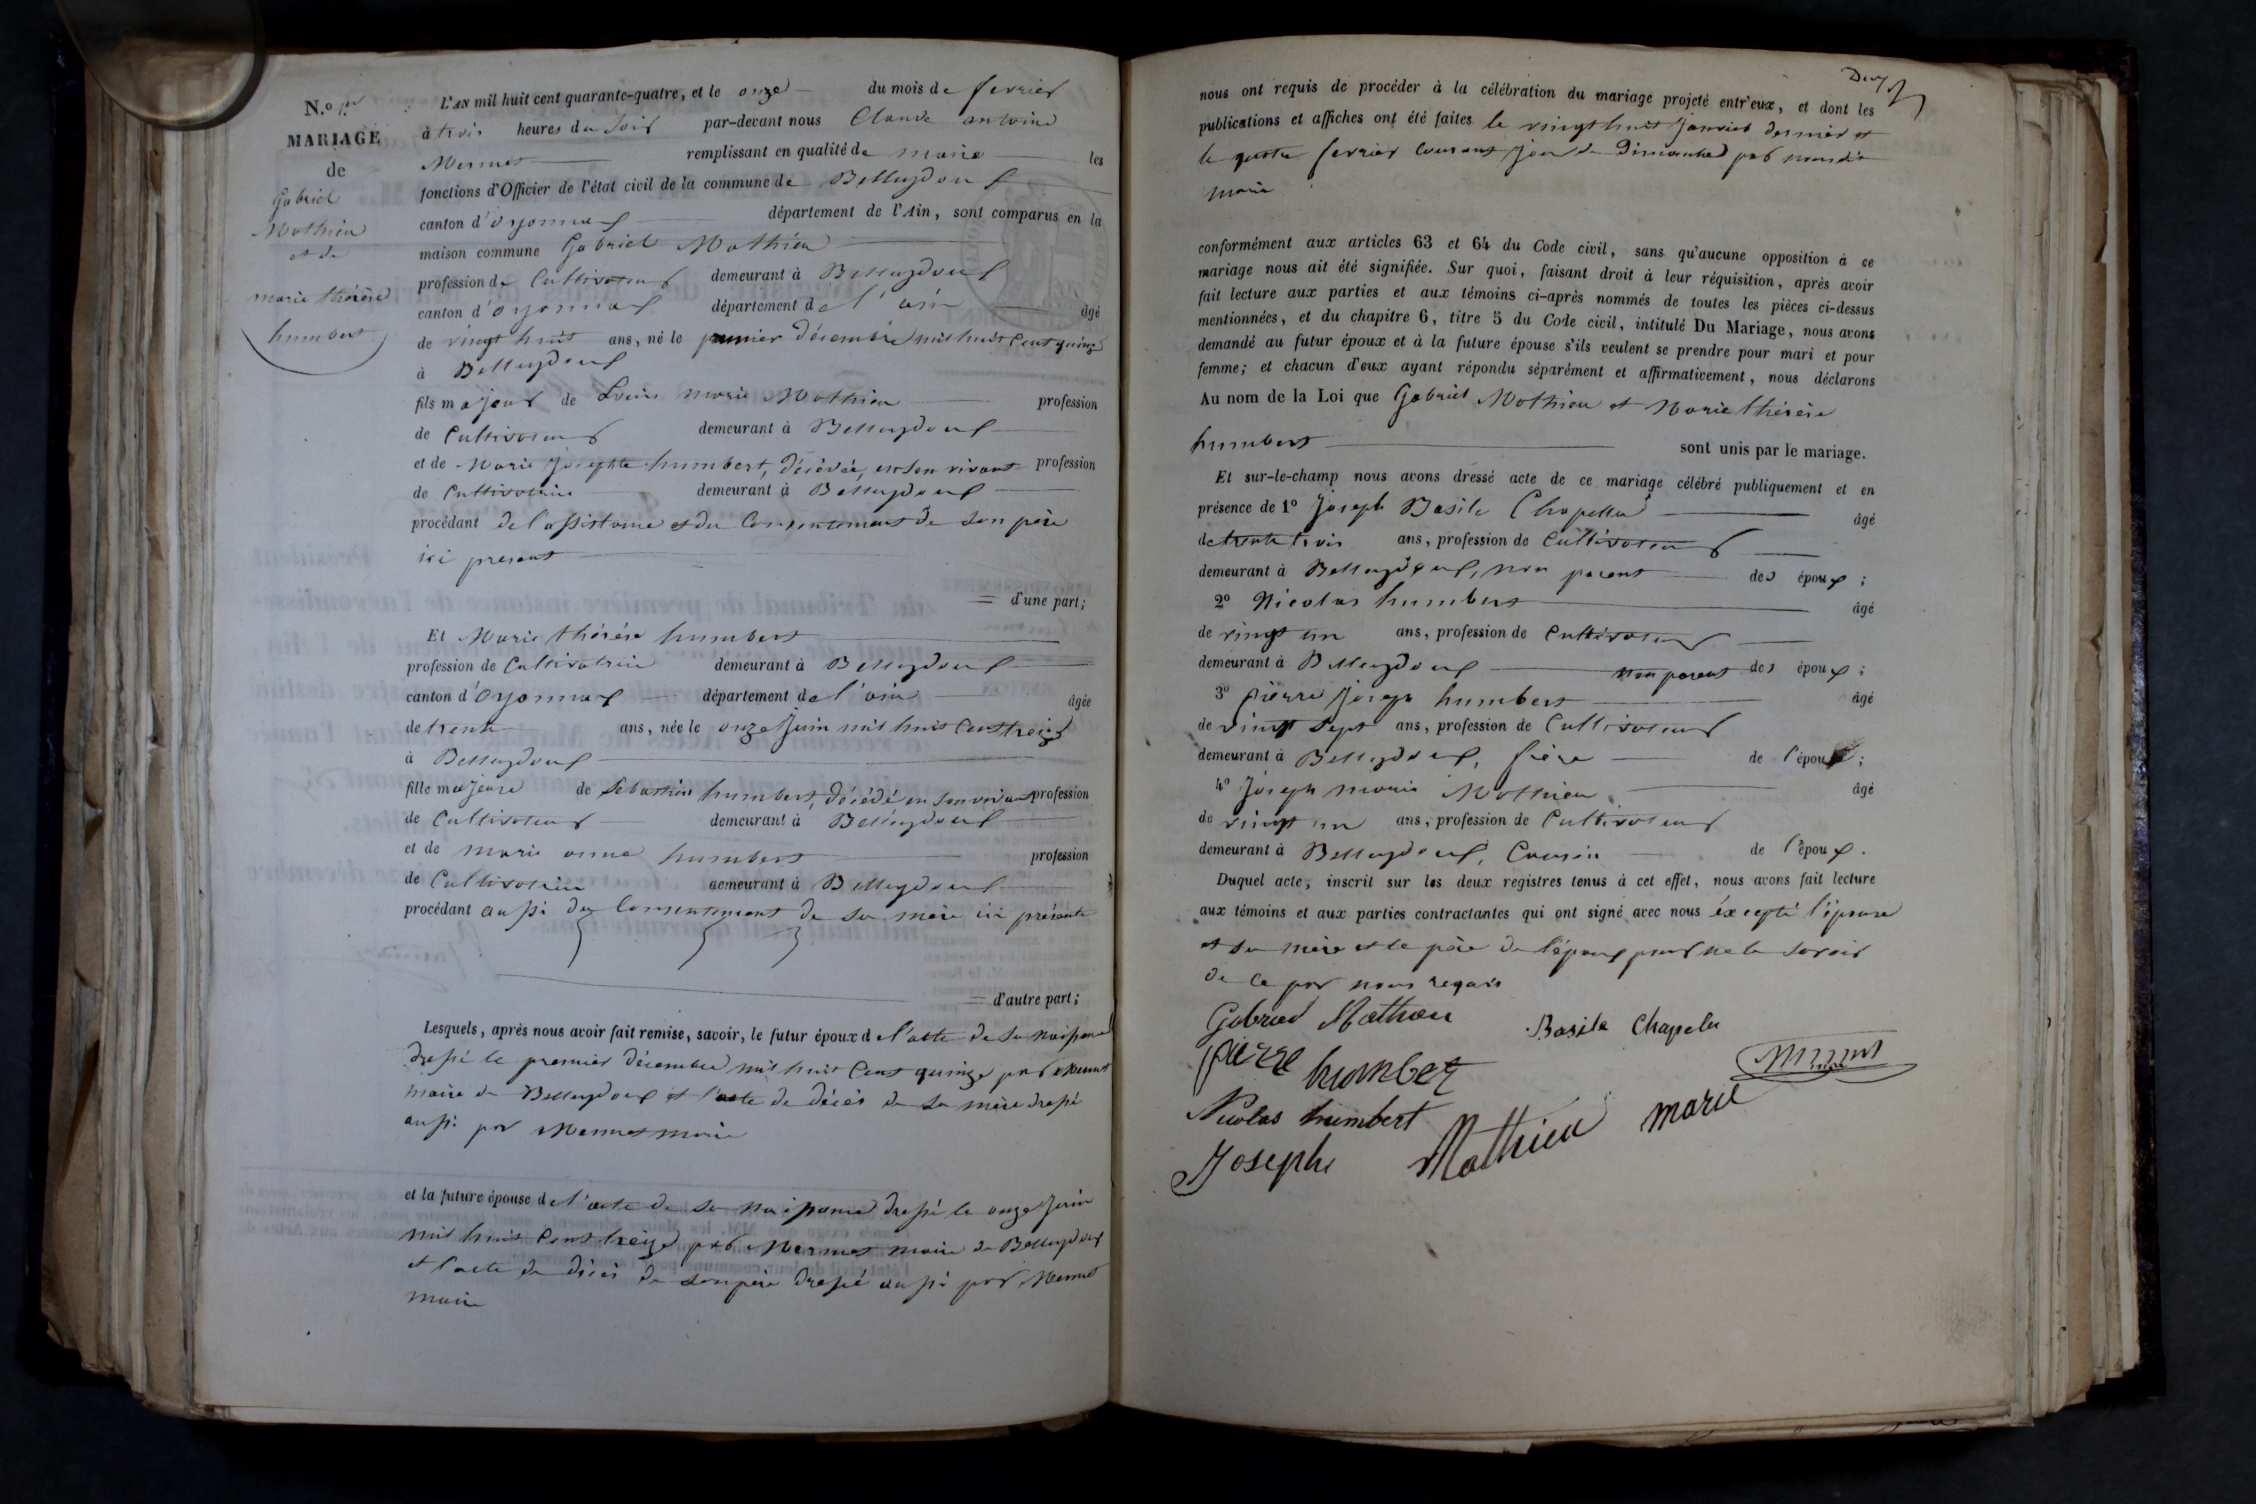 N.o 1er
MARIAGE
de
Gabriel
Mathieu
et de
marie thérèse
humbert
L'AN mil huit cent quarante-quatre, et le onze du mois de fevrier
à trois heures du soir par-devant nous Claude antoine
Mermet remplissant en qualité de maire les
fonctions d'Officier de l'état civil de la commune de Belleydoux
canton d'oyonnax département de l'Ain, sont comparus en la
maison commune Gabriel Mathieu
profession de Cultivateur demeurant à Belleydoux
canton d'oyonnax département de l'ain âgé
de vingt huit ans, né le premier décembre mil huit Cent quinze
à Belleydoux
fils majeur de Louis marie Mathieu profession
de Cultivateur demeurant à Belleydoux
et de Marie Josephte humbert, décédée, en son vivant profession
de Cultivatrice demeurant à Belleydoux
procédant de l'assistance et du Consentement de son père
ici present
d'une part;
Et Marie thérèse humbert
profession de Cultivatrice demeurant à Belleydoux
canton d'Oyonnax département de l'ain âgée
de trente ans, née le onze Juin mil huit Cent treize
à Belleydoux
fille majeure de Sebastien humbert, décédé en son vivant profession
de Cultivateur demeurant à Belleydoux
et de marie anne humbert profession
de Cultivatrice demeurant à Belleydoux
procédant aussi du Consentement de sa mère ici présente
d'autre part;
Lesquels, après nous avoir fait remise, savoir, le futur époux de l'acte de sa naissance
dressé le premier décembre mil huit Cent quinze par Mermet
maire de Belleydoux et l'acte de décès de sa mère dressé
aussi par Mermet maire
et la future épouse de l'acte de sa naissance dressé le onze Juin
mil huit Cent treize par Mermet maire de Belleydoux
et l'acte de décès de son père dressé aussi par Mermet
maire
Deux
nous ont requis de procéder à la célébration du mariage projeté entr'eux, et dont les
publications et affiches ont été faites le vingt huit Janvier dernier et
le quatre fevrier courant jour de Dimanche par nous dit
maire
conformément aux articles 63 et 64 du Code civil, sans qu'aucune opposition à ce
mariage nous ait été signifiée. Sur quoi, faisant droit à leur réquisition, après avoir
fait lecture aux parties et aux témoins ci-après nommés de toutes les pièces ci-dessus
mentionnées, et du chapitre 6, titre 5 du Code civil, intitulé Du Mariage, nous avons
demandé au futur époux et à la future épouse s'ils veulent se prendre pour mari et pour
femme; et chacun d'eux ayant répondu séparément et affirmativement, nous déclarons
Au nom de la Loi que Gabriel Mathieu et Marie thérèse
humbert sont unis par le mariage.
Et sur-le-champ nous avons dressé acte de ce mariage célébré publiquement et en
présence de 1o Joseph Basile Chapellu âgé
de trente trois ans, profession de Cultivateur
demeurant à Belleydoux, non parent des époux;
2o Nicolas humbert âgé
de vingt un ans, profession de Cultivateur
demeurant à Belleydoux non parent des époux;
3o pierre Joseph humbert âgé
de vingt sept ans, profession de Cultivateur
demeurant à Belleydoux, frère de l'épou ;
4o Joseph marie Mathieu âgé
de vingt un ans, profession de Cultivateur
demeurant à Belleydoux, Cousin de l'époux.
Duquel acte, inscrit sur les deux registres tenus à cet effet, nous avons fait lecture
aux témoins et aux parties contractantes qui ont signé avec nous éxcepté l'épouse
et sa mère et le père de l'époux pour ne le savoir
de ce par nous requis
Gabriel Mathieu Basile Chapelu
pierre humbert Mermet
Nicolas humbert
Joseph Mathieu marie